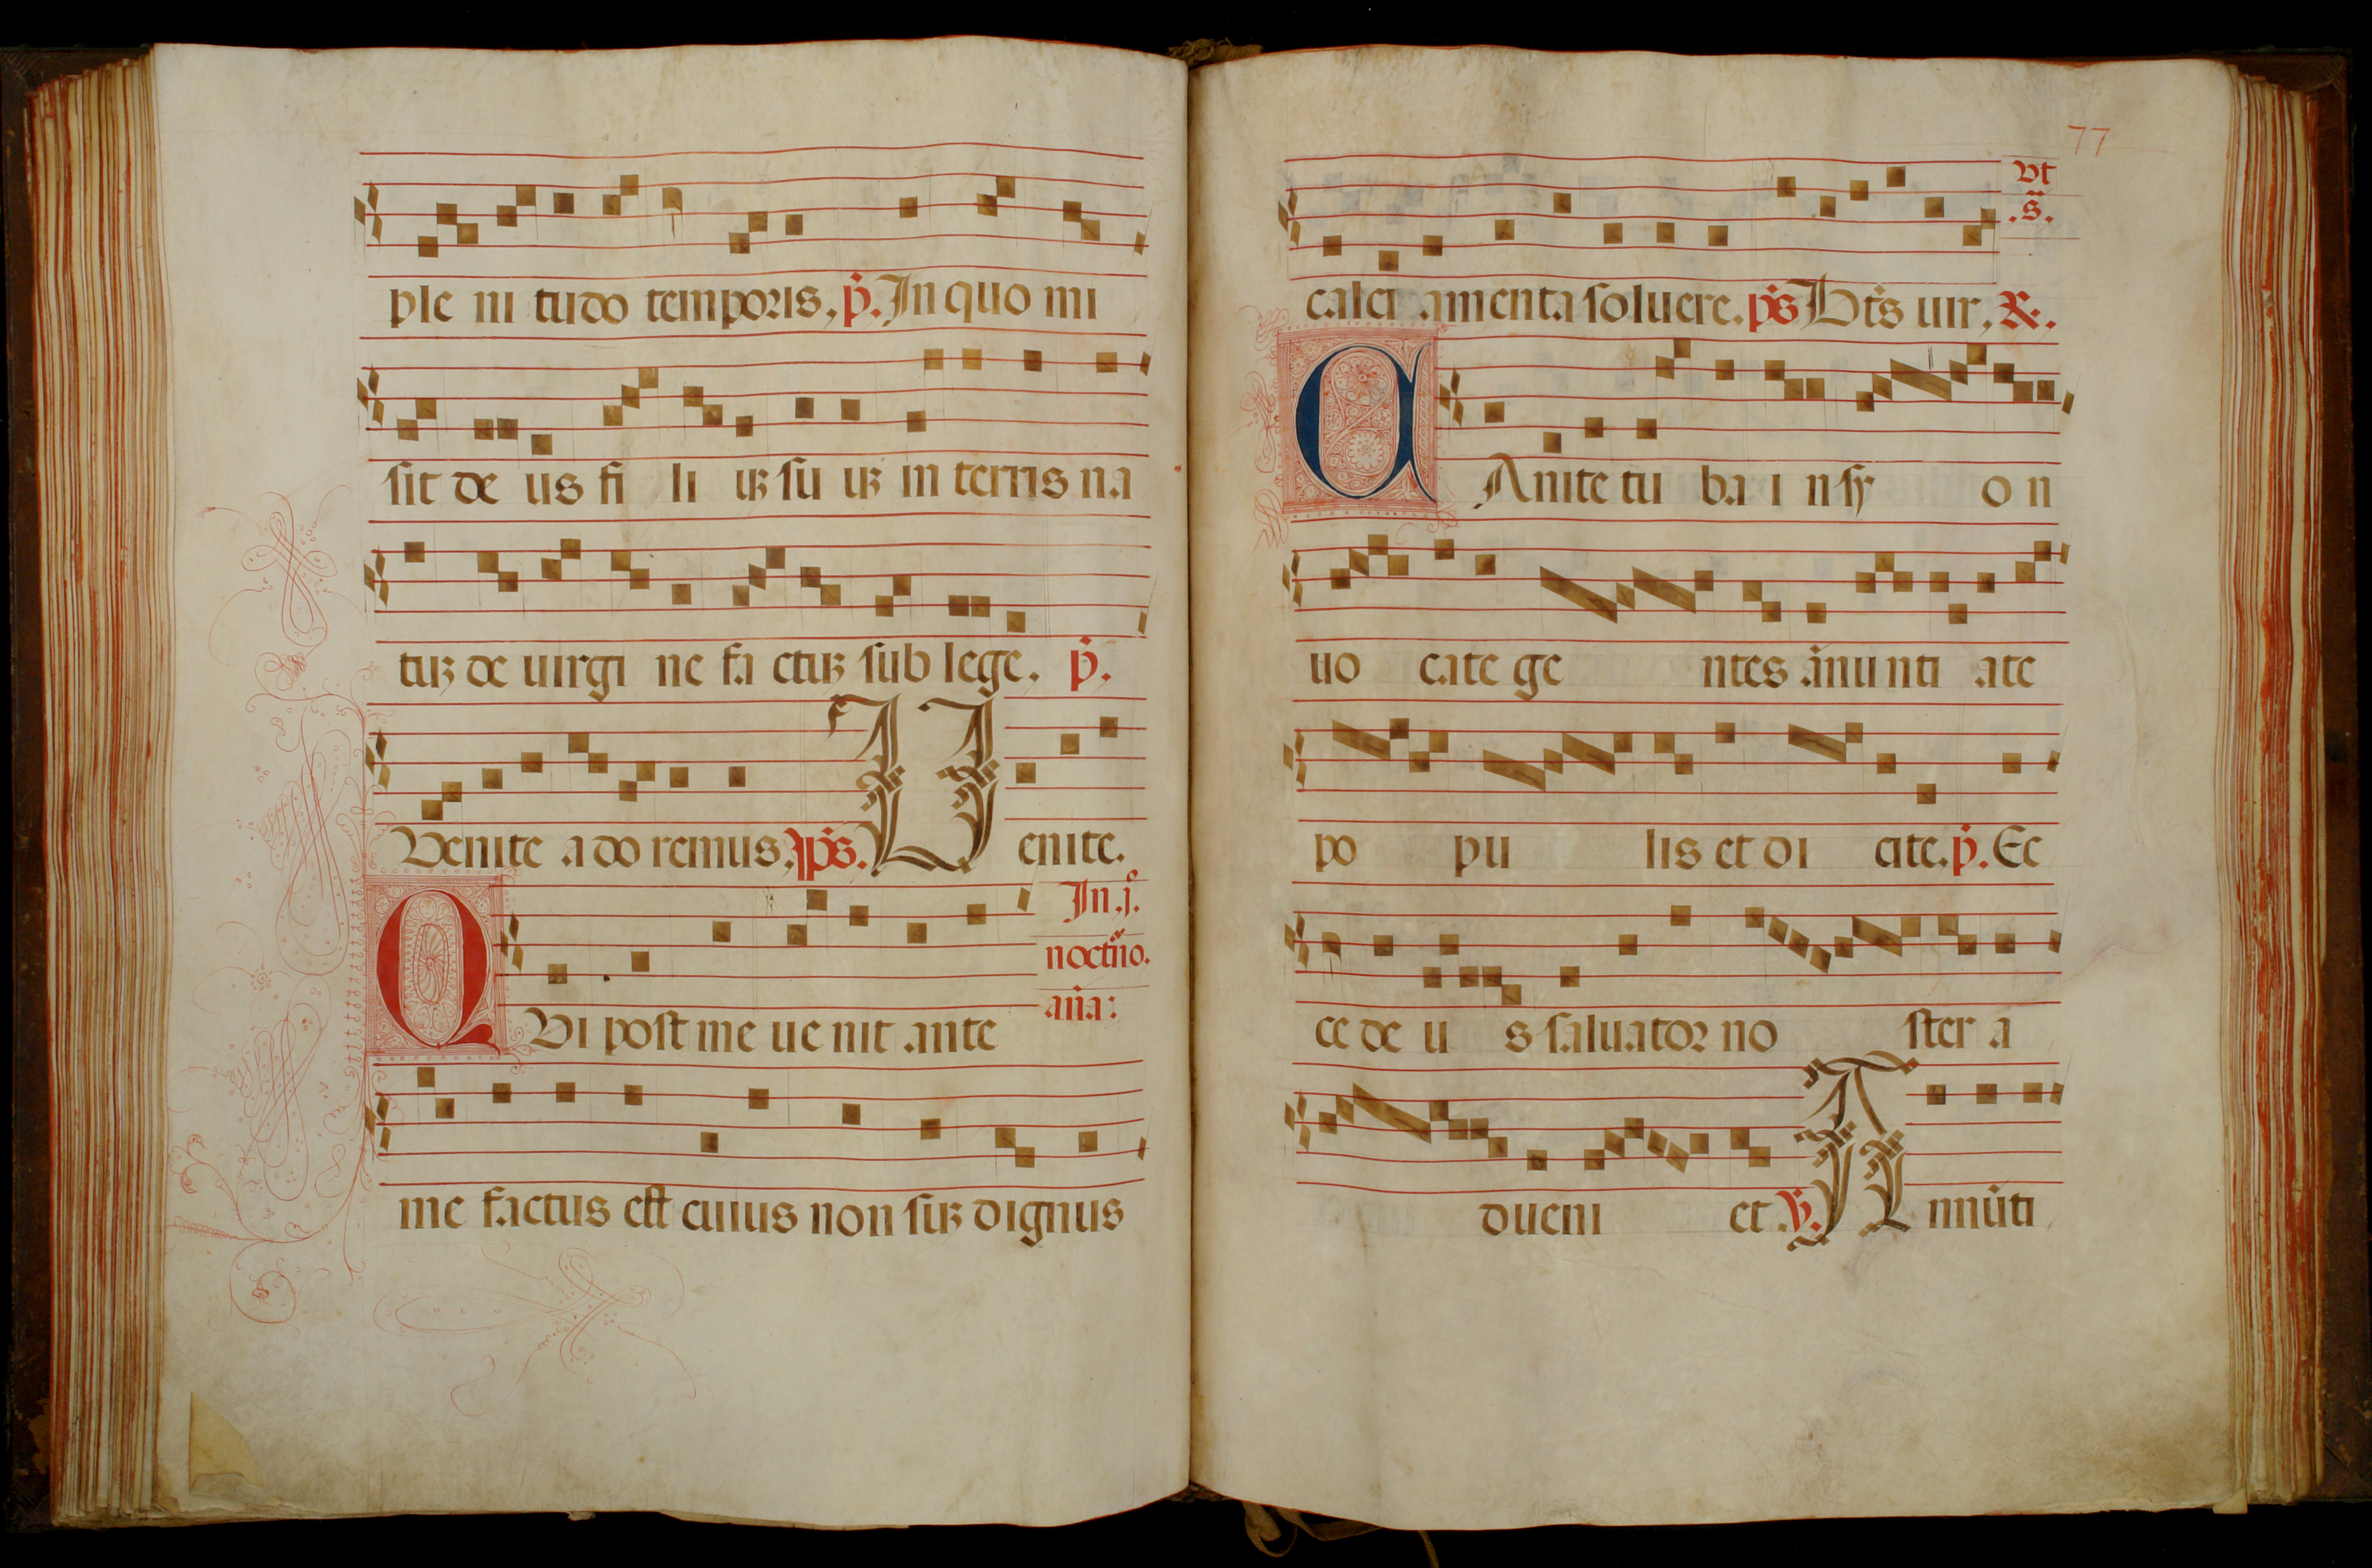 ple ni tudo temporis, p̃. In quo mi
sit de us fi li uꝫ su uꝫ in terris na
tuꝫ de uirgi ne fa ctuꝫ sub lege. p̃.
Venite ado remus, ps̃. U enite.
In .j.º
noctũo.
añа:
Q VI post me ue nit ante
me factus est cuius non suꝫ dignus
77
vt
.s̃.
calci amenta soluere. ps̃ Bt̃s uir, ℞.
C Anite tu ba i n sy o n
uo cate ge ntes ãnu nti ate
po pu lis et di cite. p̃. Ec
ce de u s saluator no ster a
dueni et. ℣. A nnũti